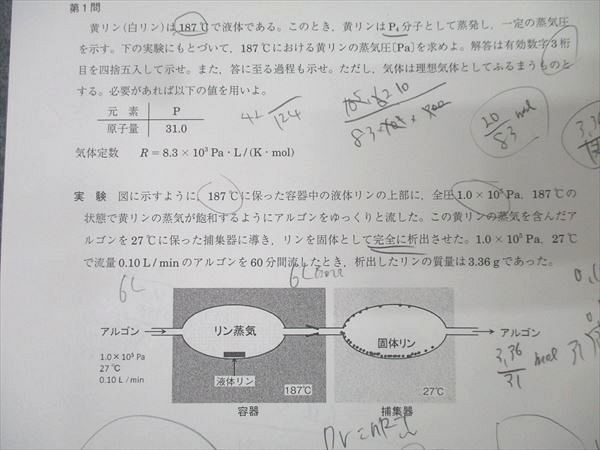 第1問
黄リン(白リン)は187℃で液体である。このとき，黄リンはP₄分子として蒸発し，一定の蒸気圧
を示す。下の実験にもとづいて，187℃における黄リンの蒸気圧〔Pa〕を求めよ。解答は有効数字3桁
目を四捨五入して示せ。また，答に至る過程も示せ。ただし，気体は理想気体としてふるまうものと
する。必要があれば以下の値を用いよ。
元 素 P
原子量 31.0
124
20/83 mol
気体定数 R = 8.3 × 10³ Pa・L/(K・mol)
実 験 図に示すように，187℃に保った容器中の液体リンの上部に，全圧1.0 × 10⁵ Pa，187℃の
状態で黄リンの蒸気が飽和するようにアルゴンをゆっくりと流した。この黄リンの蒸気を含んだア
ルゴンを27℃に保った捕集器に導き，リンを固体として完全に析出させた。1.0 × 10⁵ Pa，27℃
で流量0.10 L/minのアルゴンを60分間流したとき，析出したリンの質量は3.36 gであった。
6L
アルゴン
1.0 × 10⁵ Pa
27℃
0.10 L/min
リン蒸気
液体リン
187℃
容器
固体リン
27℃
捕集器
アルゴン
3.36/31 mol